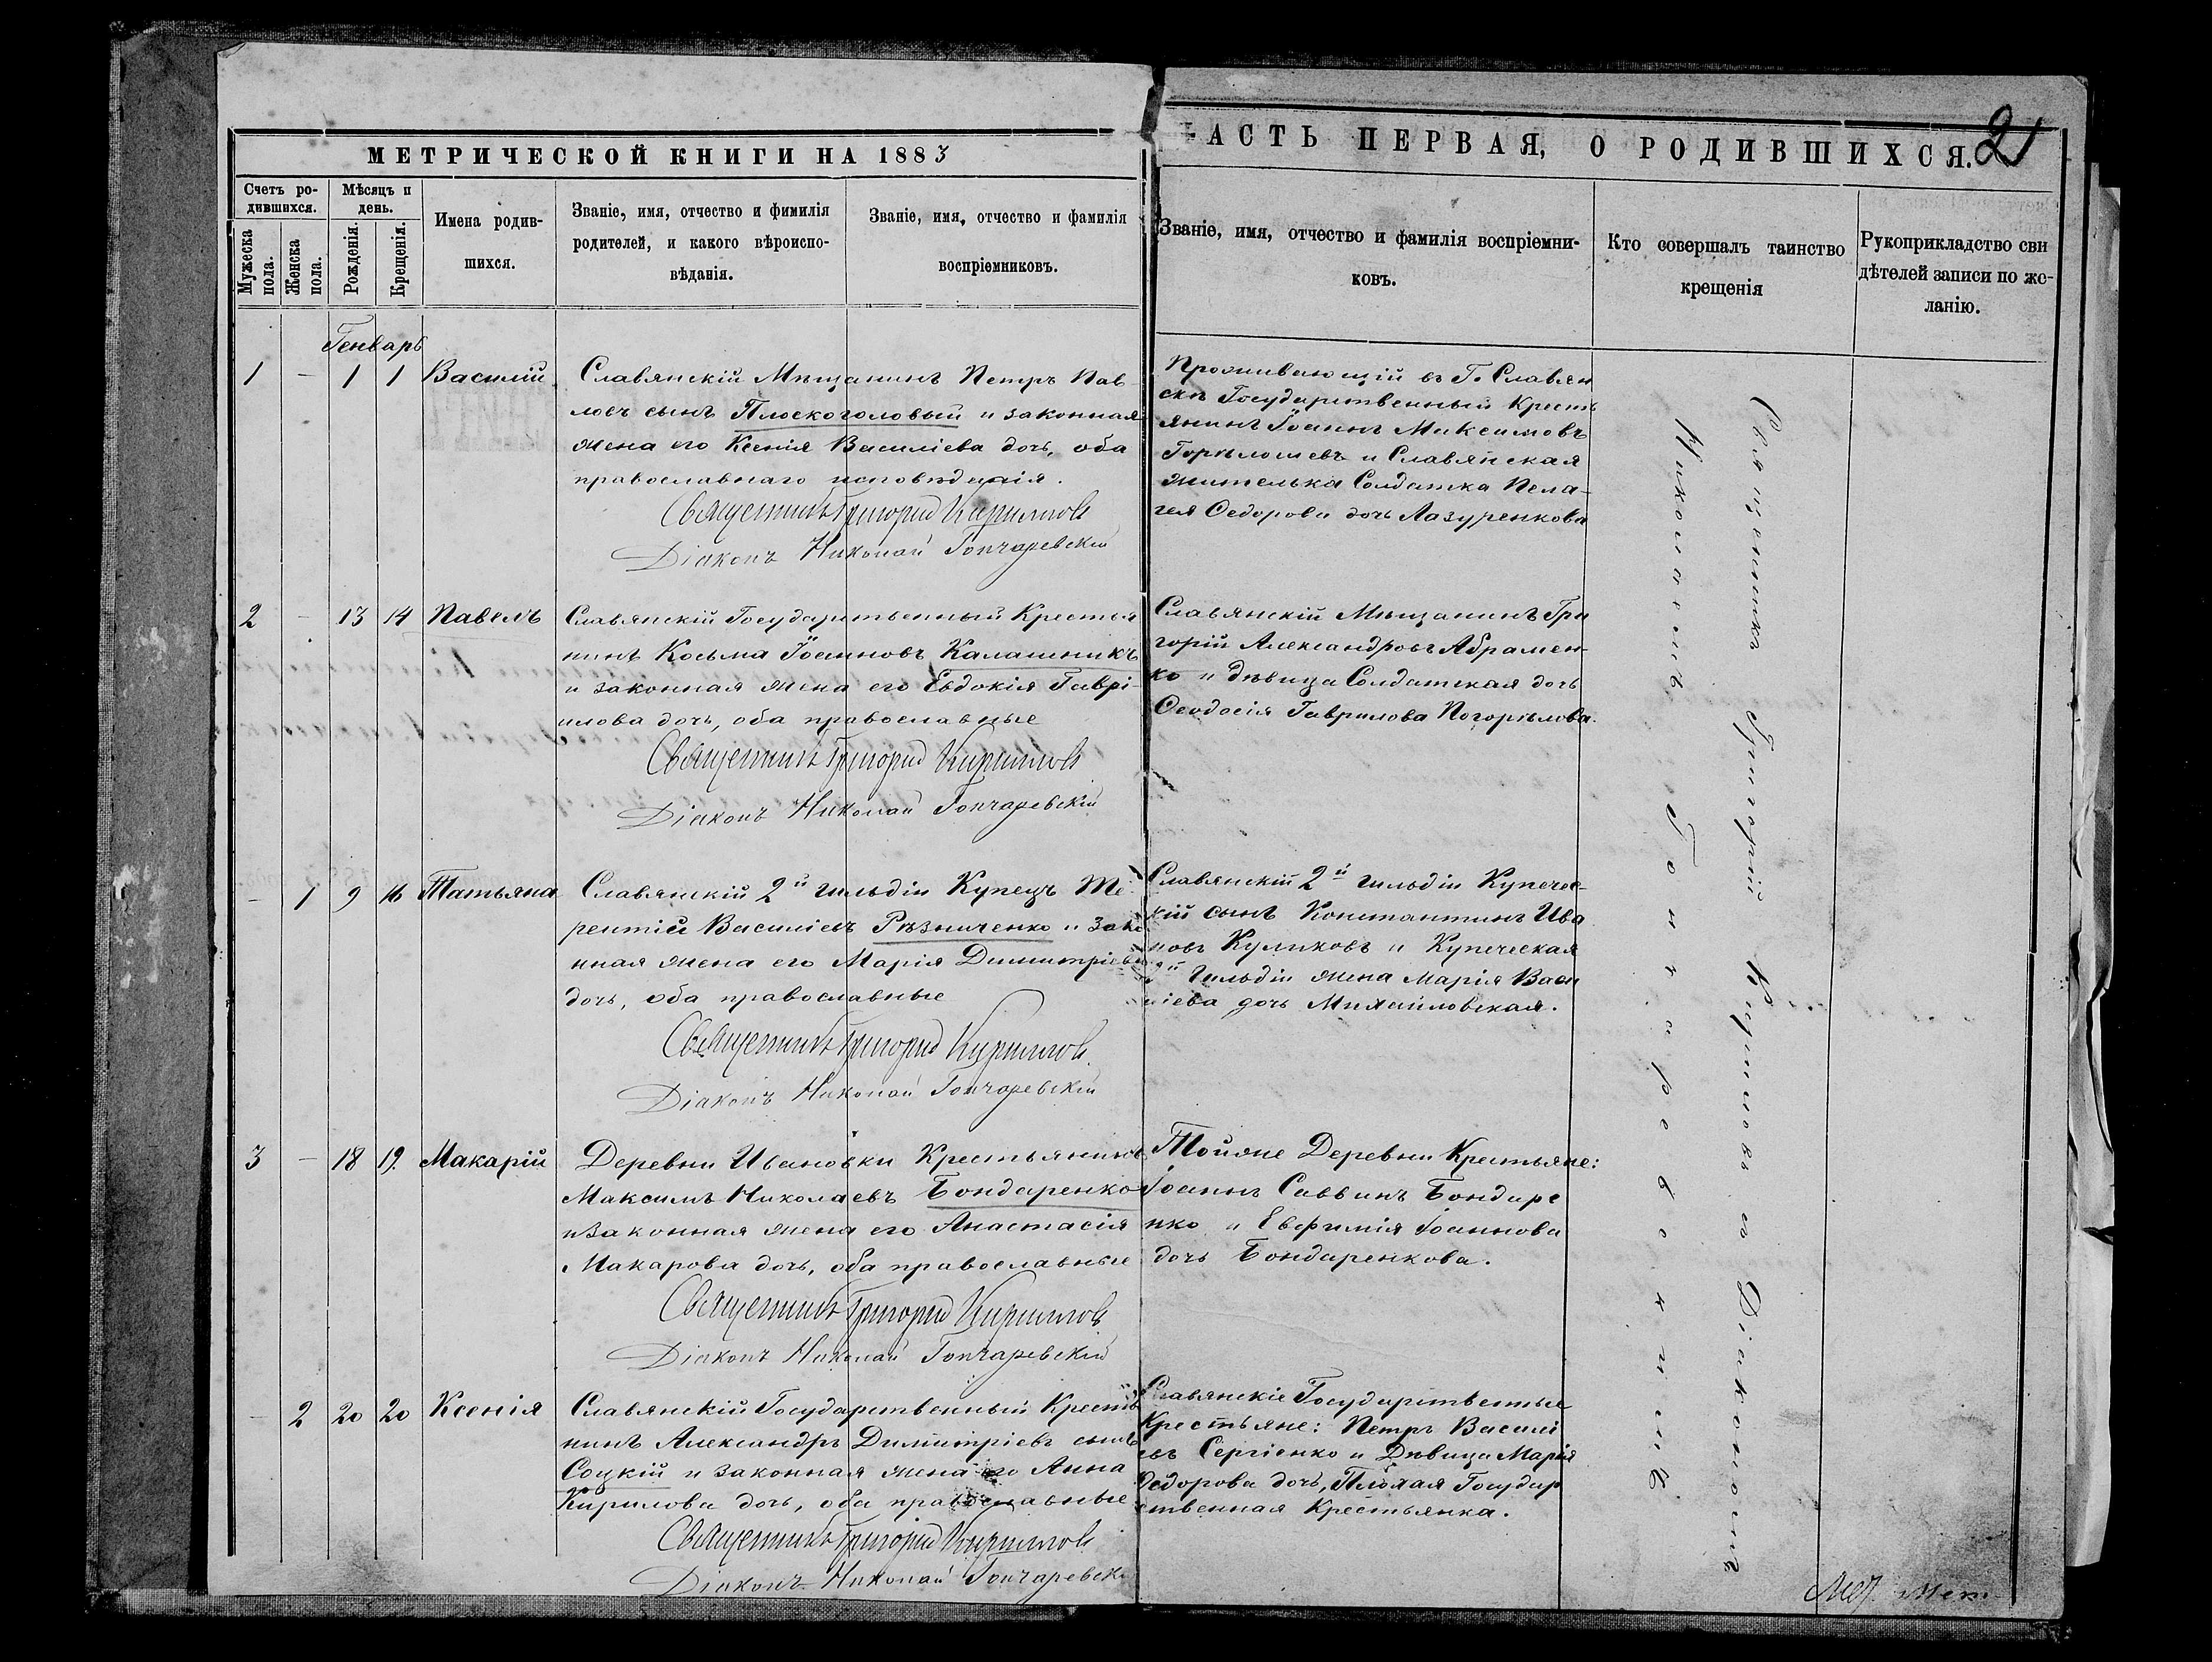 МЕТРИЧЕСКОЙ КНИГИ НА 1883
ЧАСТЬ ПЕРВАЯ, О РОДИВШИХСЯ.
2
Счетъ ро-
дившихся.
Мужеска пола.
Женска пола.
Мѣсяцъ и
день.
Рожденія.
Крещенія.
Имена родив-
шихся.
Званіе, имя, отчество и фимилія
родителей, и какого вѣроиспо-
вѣданія.
Званіе, имя, отчество и фамилія
воспріемниковъ.
Званіе, имя, отчество и фамилія воспріемни-
ковъ.
Кто совершалъ таинство
крещенія
Рукоприкладство сви
дѣтелей записи по же-
ланію.
Генварь
1 - 1 1 Василій
Славянскій Мѣщанинъ Петръ Пав-
ловъ сынъ Плоскоголовый и законная
жена его Ксенія Василіева дочь, оба
православнаго исповѣданія.
Священникъ Григорій Кирилловъ
Діаконъ Николай Гончаревскій
Проживающій въ Г. Славян
скѣ Государственный Кресть
янинъ Іоаннъ Максимовъ
Горѣлошевъ и Славянская
жителька Солдатка Пела-
гея Ѳедорова дочь Лазуренкова
2 - 13 14 Павелъ
Славянскій Государственный Крестья
нинъ Косьма Іоанновъ Калашникъ
и законная жена его Евдокія Гаврі-
илова дочь, оба православные
Священникъ Григорій Кирилловъ
Діаконъ Николай Гончаревскій
Славянскій Мѣщанинъ Гри
горій Александровъ Абрамен-
ко и дѣвица Солдатская дочь
Ѳеодосія Гаврилова Погорѣлова.
- 1 9 16 Татьяна
Славянскій 2й гильдіи Купецъ Те-
рентій Василіевъ Рѣзниченко и зако
нная жена его Марія Димитріева
дочь, оба православные
Священникъ Григорій Кирилловъ
Діаконъ Николай Гончаревскій
Славянскій 2й гильдіи Купечес-
кій сынъ Константинъ Ива
новъ Куликовъ и Купеческая
2й гильдіи жена Марія Васи
ліева дочь Михайловская.
3 - 18 19. Макарій
Деревни Ивановки Крестьянинъ
Максимъ Николаевъ Бондаренко
и законная жена его Анастасія
Макарова дочь, оба православные
Священникъ Григорій Кирилловъ
Діаконъ Николай Гончаревскій
Тойже Деревни Крестьяне:
Іоаннъ Саввинъ Бондаре
нко и Евфимія Іоаннова
дочь Бондаренкова.
- 2 20 20 Ксенія
Славянскій Государственный Крестья
нинъ Александръ Димитріевъ сынъ
Соцкій и законная жена его Анна
Кирилова дочь, оба православные
Священникъ Григорій Кирилловъ
Діаконъ Николай Гончаревскі
Славянскіе Государственные
Крестьяне: Петръ Василі
евъ Сергіенко и Дѣвица Марія
Ѳедорова дочь, Плохая Государ
ственная Крестьянка.
Священникъ Григорій Кирилловъ съ Діакономъ
Николаемъ Гончаревскимъ